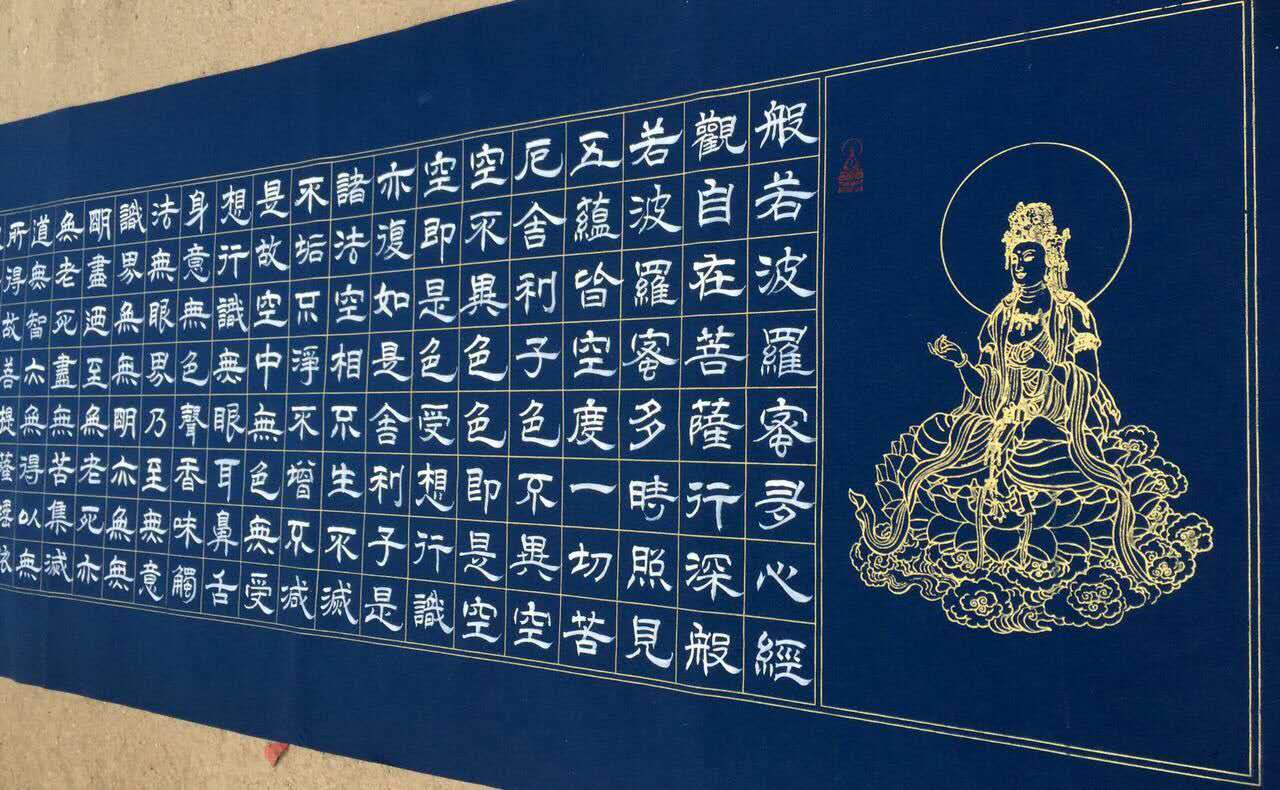 般若波羅蜜多心經
觀自在菩薩行深般
若波羅蜜多時照見
五蘊皆空度一切苦
厄舍利子色不異空
空不異色色即是空
空即是色受想行識
亦復如是舍利子是
諸法空相不生不滅
不垢不淨不增不減
是故空中無色無受
想行識無眼耳鼻舌
身意無色聲香味觸
法無眼界乃至無意
識界無無明亦無無
明盡迺至無老死亦
無老死盡無苦集滅
道無智亦無得以無
所得故善提薩埵依